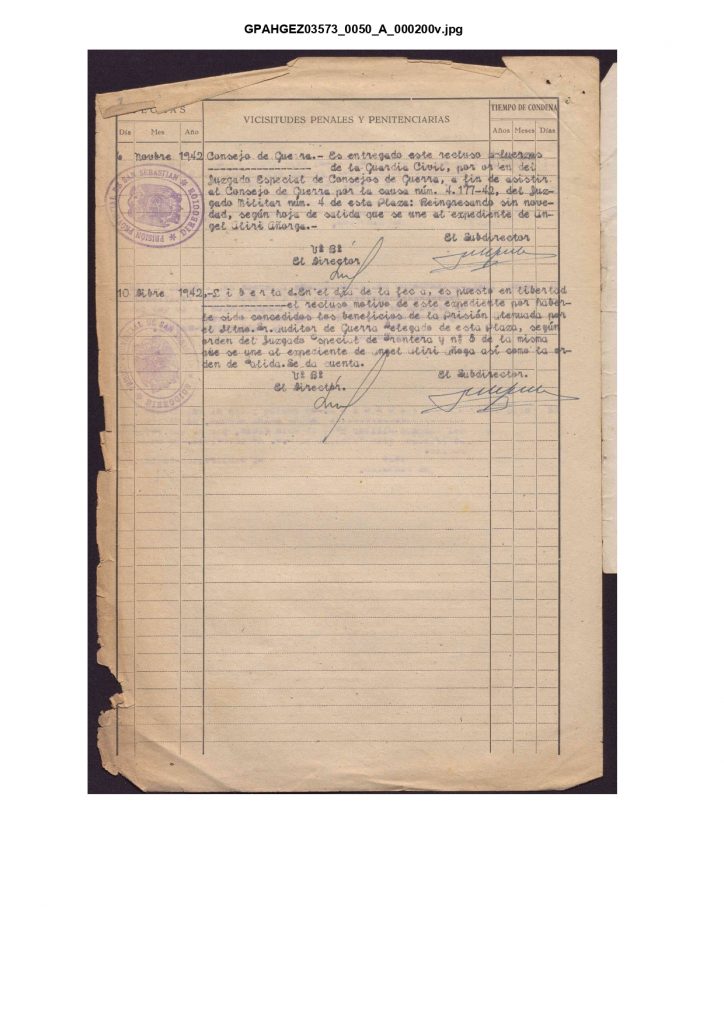 GPAHGEZ03573_0050_A_000200v.jpg
VICISITUDES PENALES Y PENITENCIARIAS
TIEMPO DE CONDENA
Día Mes Año
Años Meses Días
6 Novbre 1942 Consejo de Guerra.- Es entregado este recluso a fuerzas
de la Guardia Civil, por orden del
Juzgado Especial de Consejos de Guerra, a fin de asistir
al Consejo de Guerra por la causa núm. 4.177-42, del Juz-
gado Militar núm. 4 de esta Plaza: Reingresando sin nove-
dad, según hoja de salida que se une al expediente de An-
gel Aliri Añorga.-
Vº Bº
El Subdirector
El Director
PRISIÓN DE SAN SEBASTIAN
DIRECCION
10 Dibre 1942,-L i b e r t a d.En el día de la fecha, es puesto en libertad
el recluso motivo de este expediente por haber-
le sido concedidos los beneficios de la Prisión Atenuada por
el Iltmo. Sr. Auditor de Guerra Delegado de esta Plaza, según
orden del Juzgado Especial de Frontera y nº 5 de la misma
que se une al expediente de Angel Aliri Añoga así como la or-
den de Salida.Se da cuenta.
Vº Bº
El Subdirector.
El Director.
DE SAN
DIRECCION